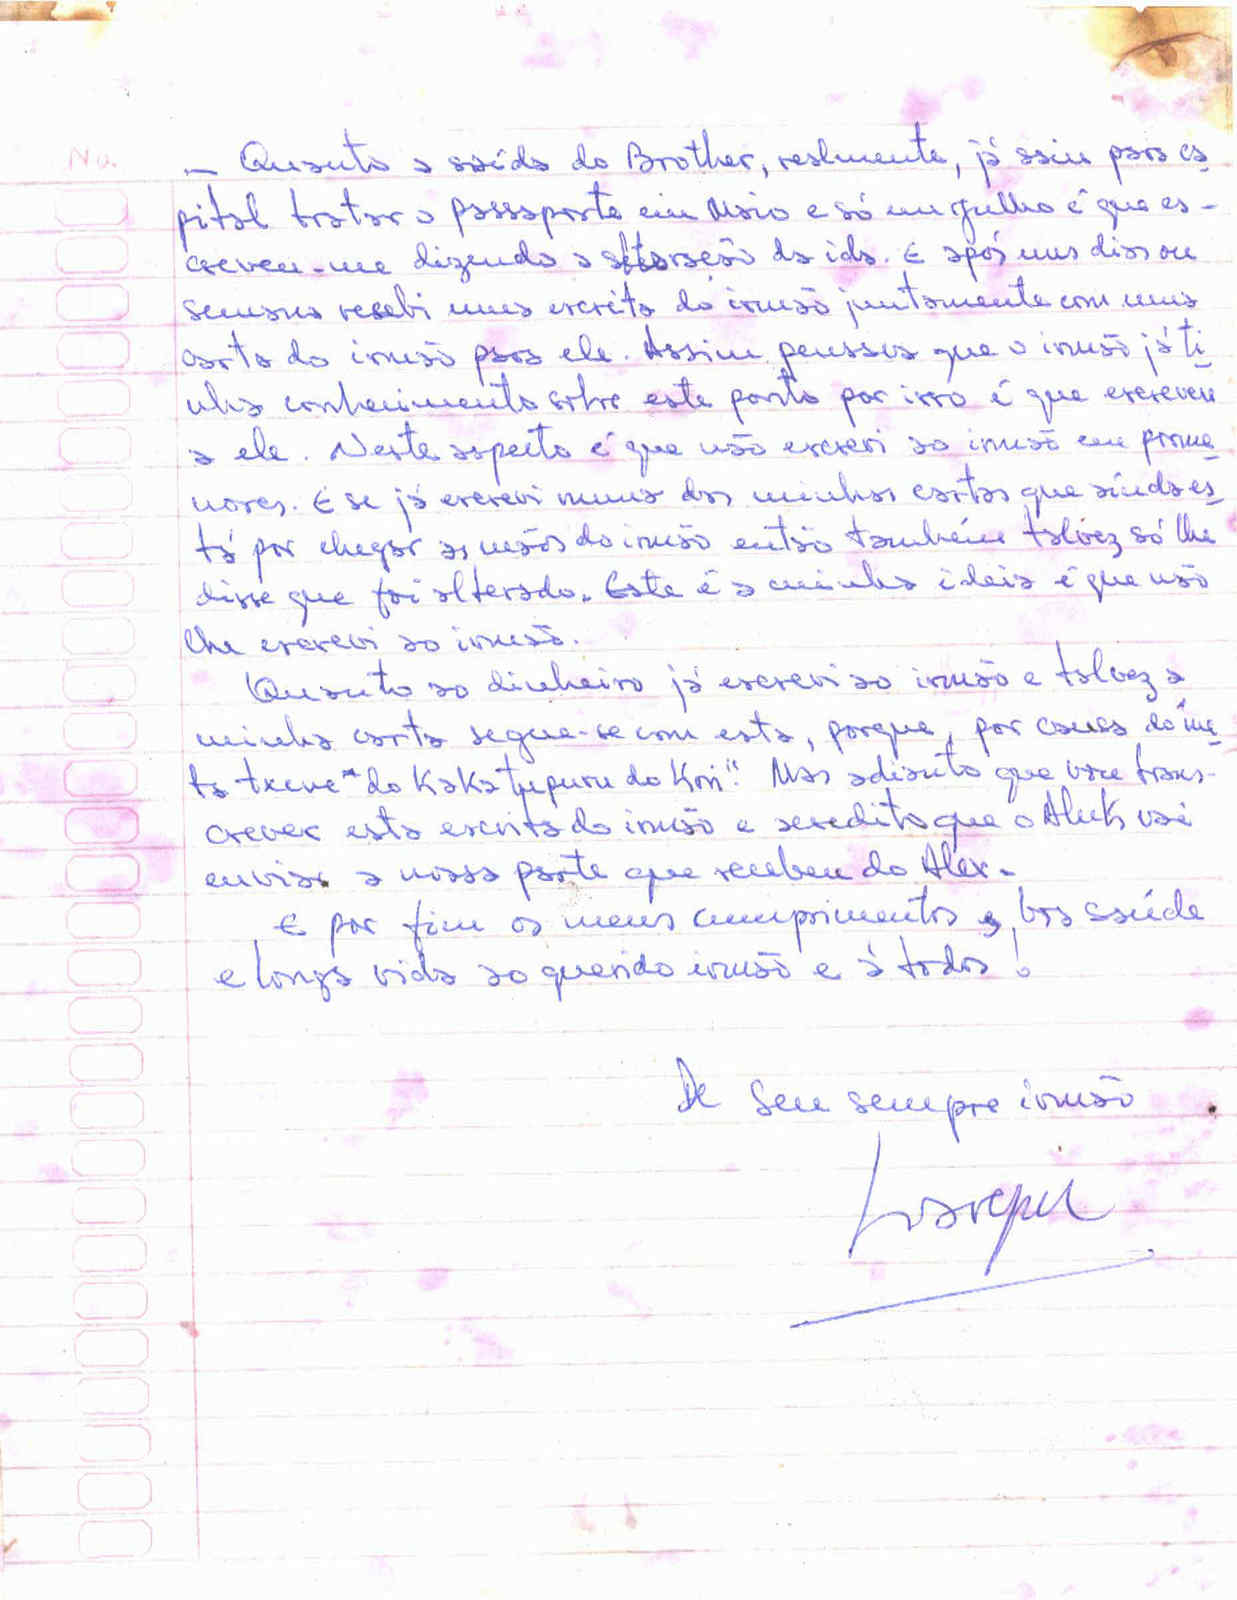 No.
— Quanto a saída do Brother, realmente, já saiu para ca_
pital tratar o passaporte em Maio e só em Julho é que es-
creveu-me dizendo a alteração da ida. E após uns dias ou
semana recebi uma escrita do irmão juntamente com uma
carta do irmão para ele. Assim pensava que o irmão já ti_
nha conhecimento sobre este ponto por isso é que escreveu
a ele. Neste aspecto é que não escrevi ao irmão em porme_
nores. E se já escrevi numa das minhas cartas que ainda es_
tá por chegar as mãos do irmão então também talvez só lhe
disse que foi alterado. Esta é a minha ideia é que não
lhe escrevi ao irmão.
Quanto ao dinheiro já escrevi ao irmão e talvez a
minha carta segue-se com esta, porque, por causa do
"do Kaka do Kri". Mas adianto que vou trans-
crever esta escrita do irmão e acredito que o vai
enviar a nossa parte que recebeu do Alex.
E por fim os meus cumprimentos, boa saúde
e longa vida ao querido irmão e á todos!
De Seu sempre irmão